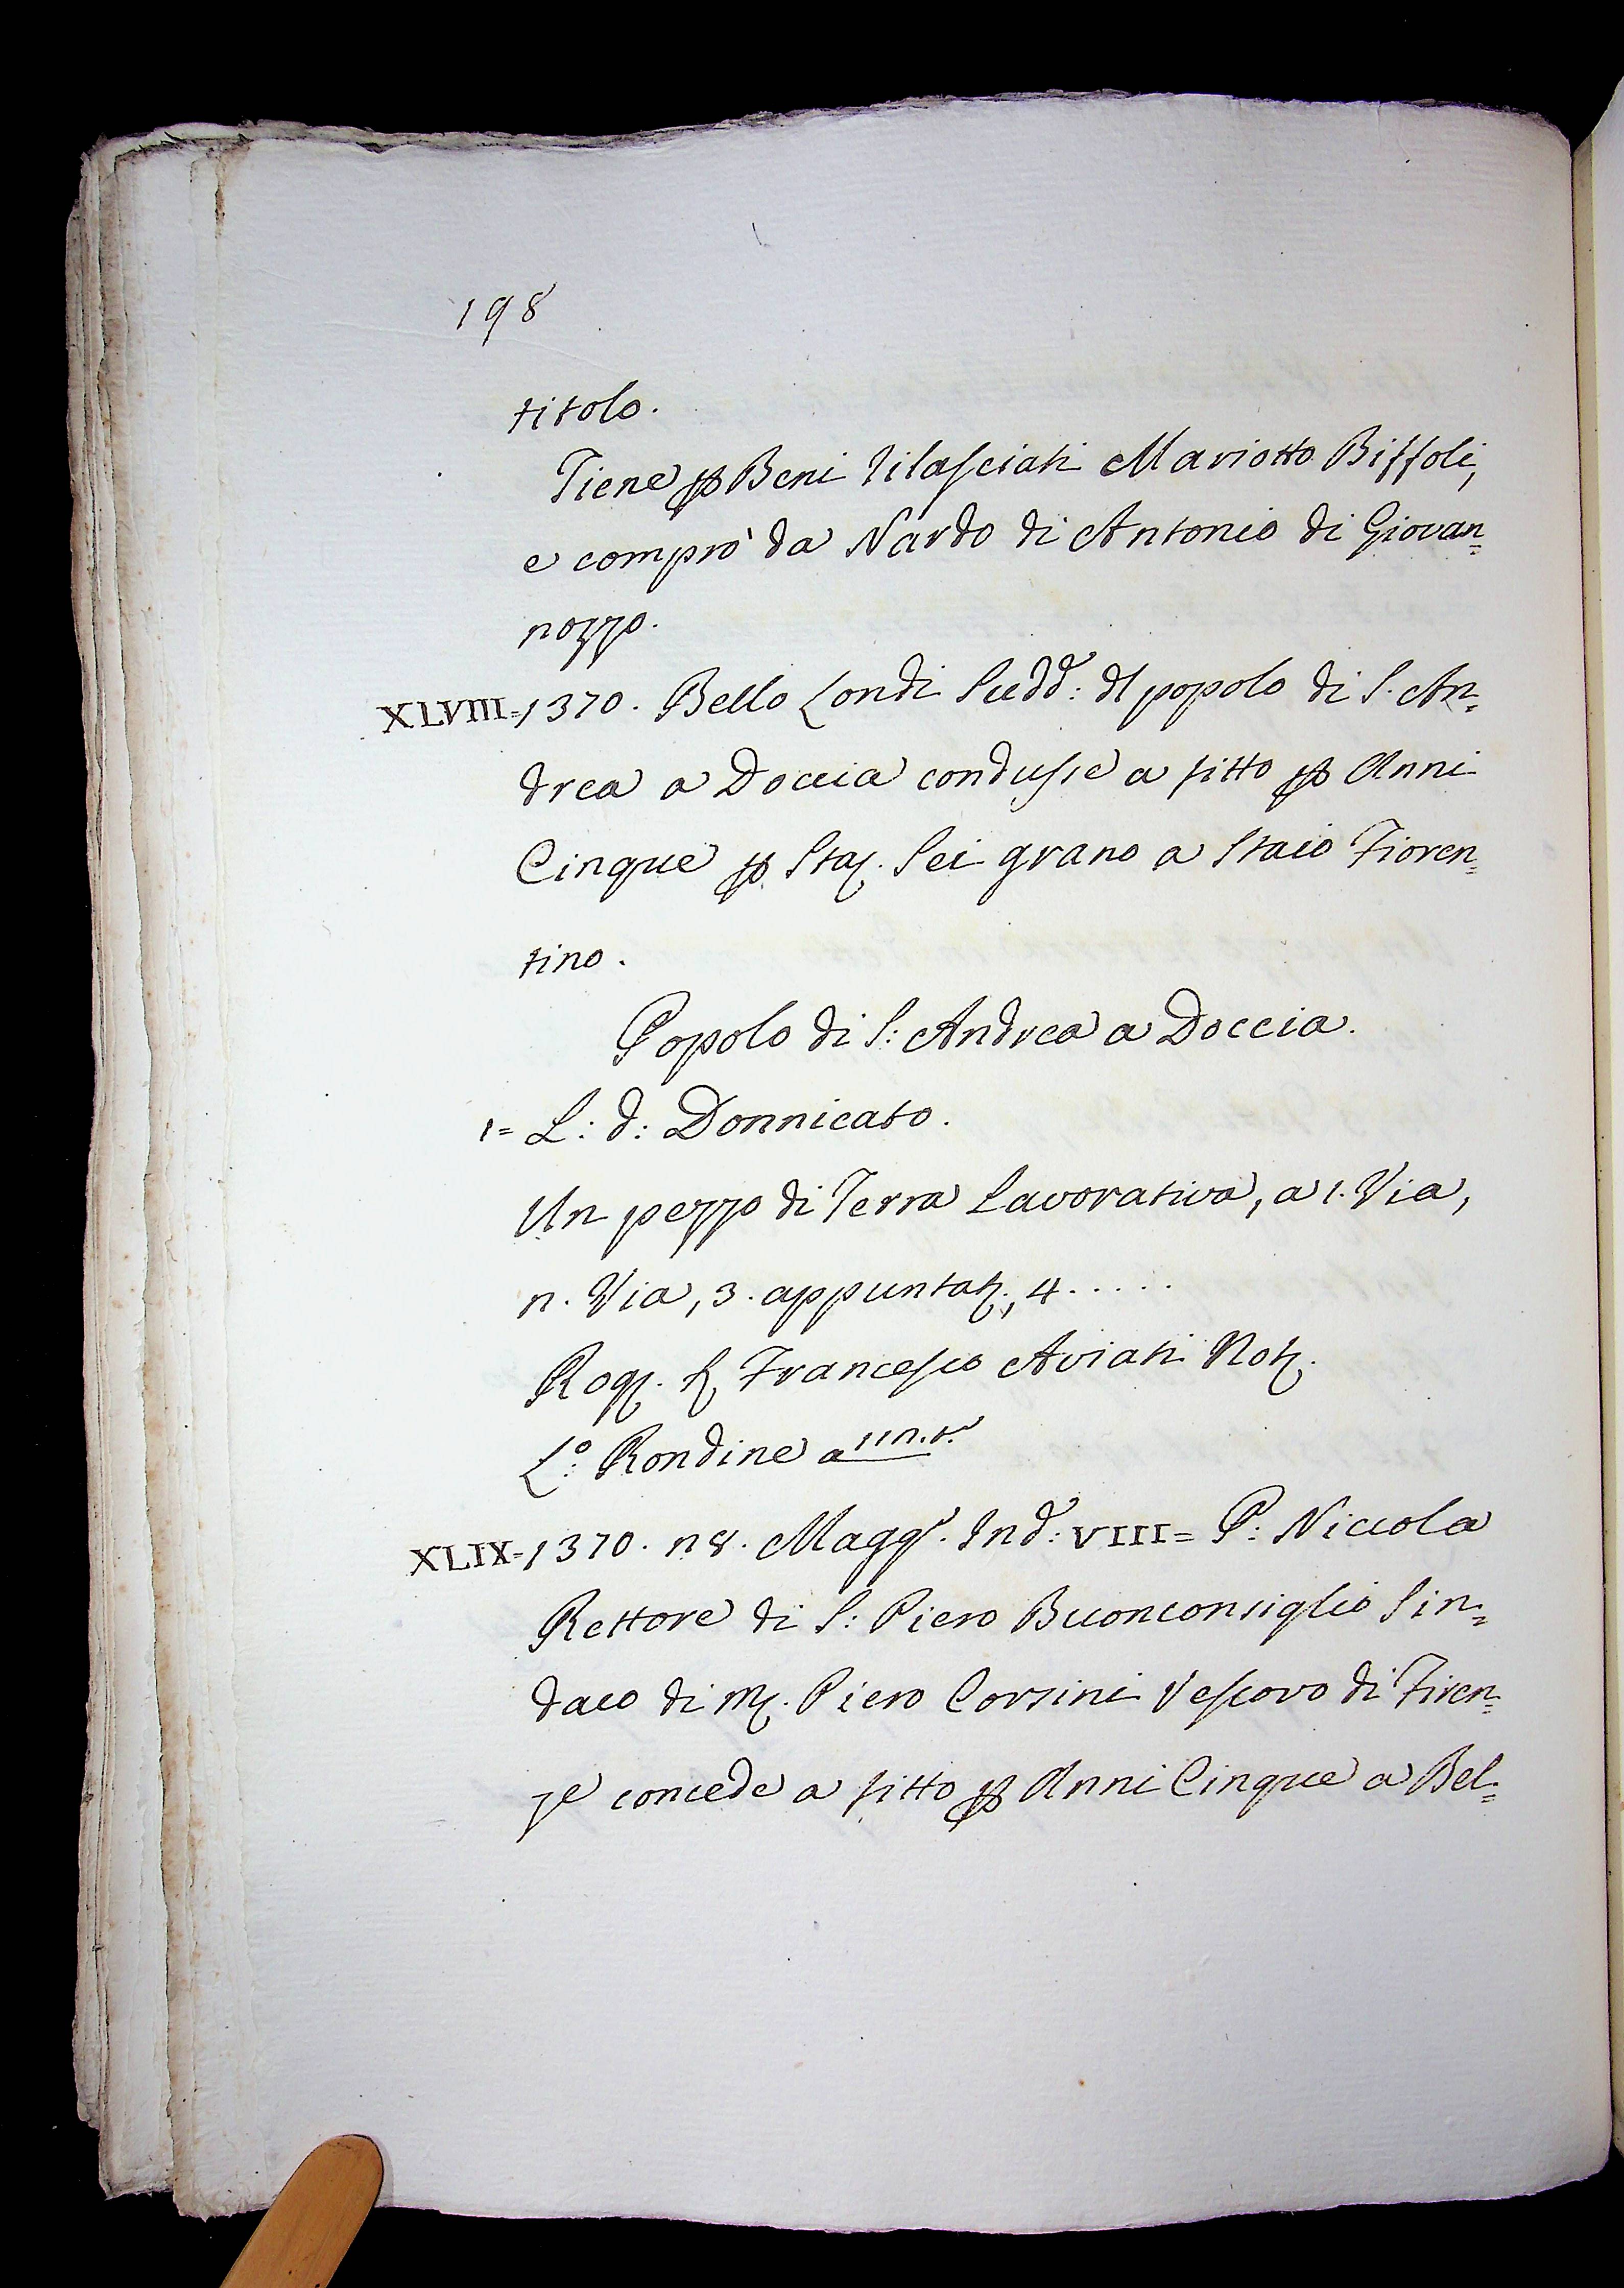 198
titolo.
Tiene p Beni rilasciati Mariotto Biffoli,
e comprò da Nardo di Antonio di Giovan=
nozzo.
XLVIII=1370. Bello Londi Sudd: dl popolo di S. An=
drea a Doccia condusse a fitto p Anni
Cinque p Staj. Sei grano a Staio Fioren=
tino.
Popolo di S: Andrea a Doccia.
1= L: d: Donnicato.
Un pezzo di Terra Lavorativa, a 1. Via,
n. Via, 3. appuntat., 4.....
Rog. Francesco Aviati Not.
L:o Rondine a 11 n.t.
XLIX=1370. n8. Magg. Ind: VIII= P: Niccola
Rettore di S: Piero Buonconsiglio Sin=
daco di M. Piero Corsini Vescovo di Firen=
ze concede a fitto p Anni Cinque a Bel=